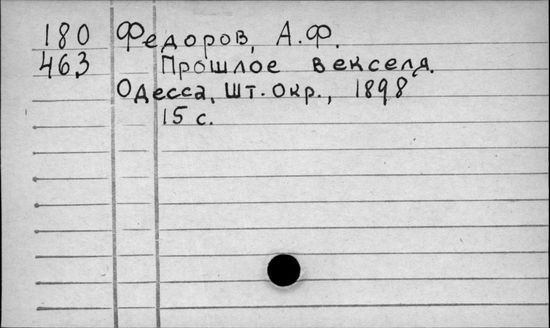 180 Федоров, А.Ф.
463 Прошлое векселя.
Одесса, Шт. окр., 1898
15 с.